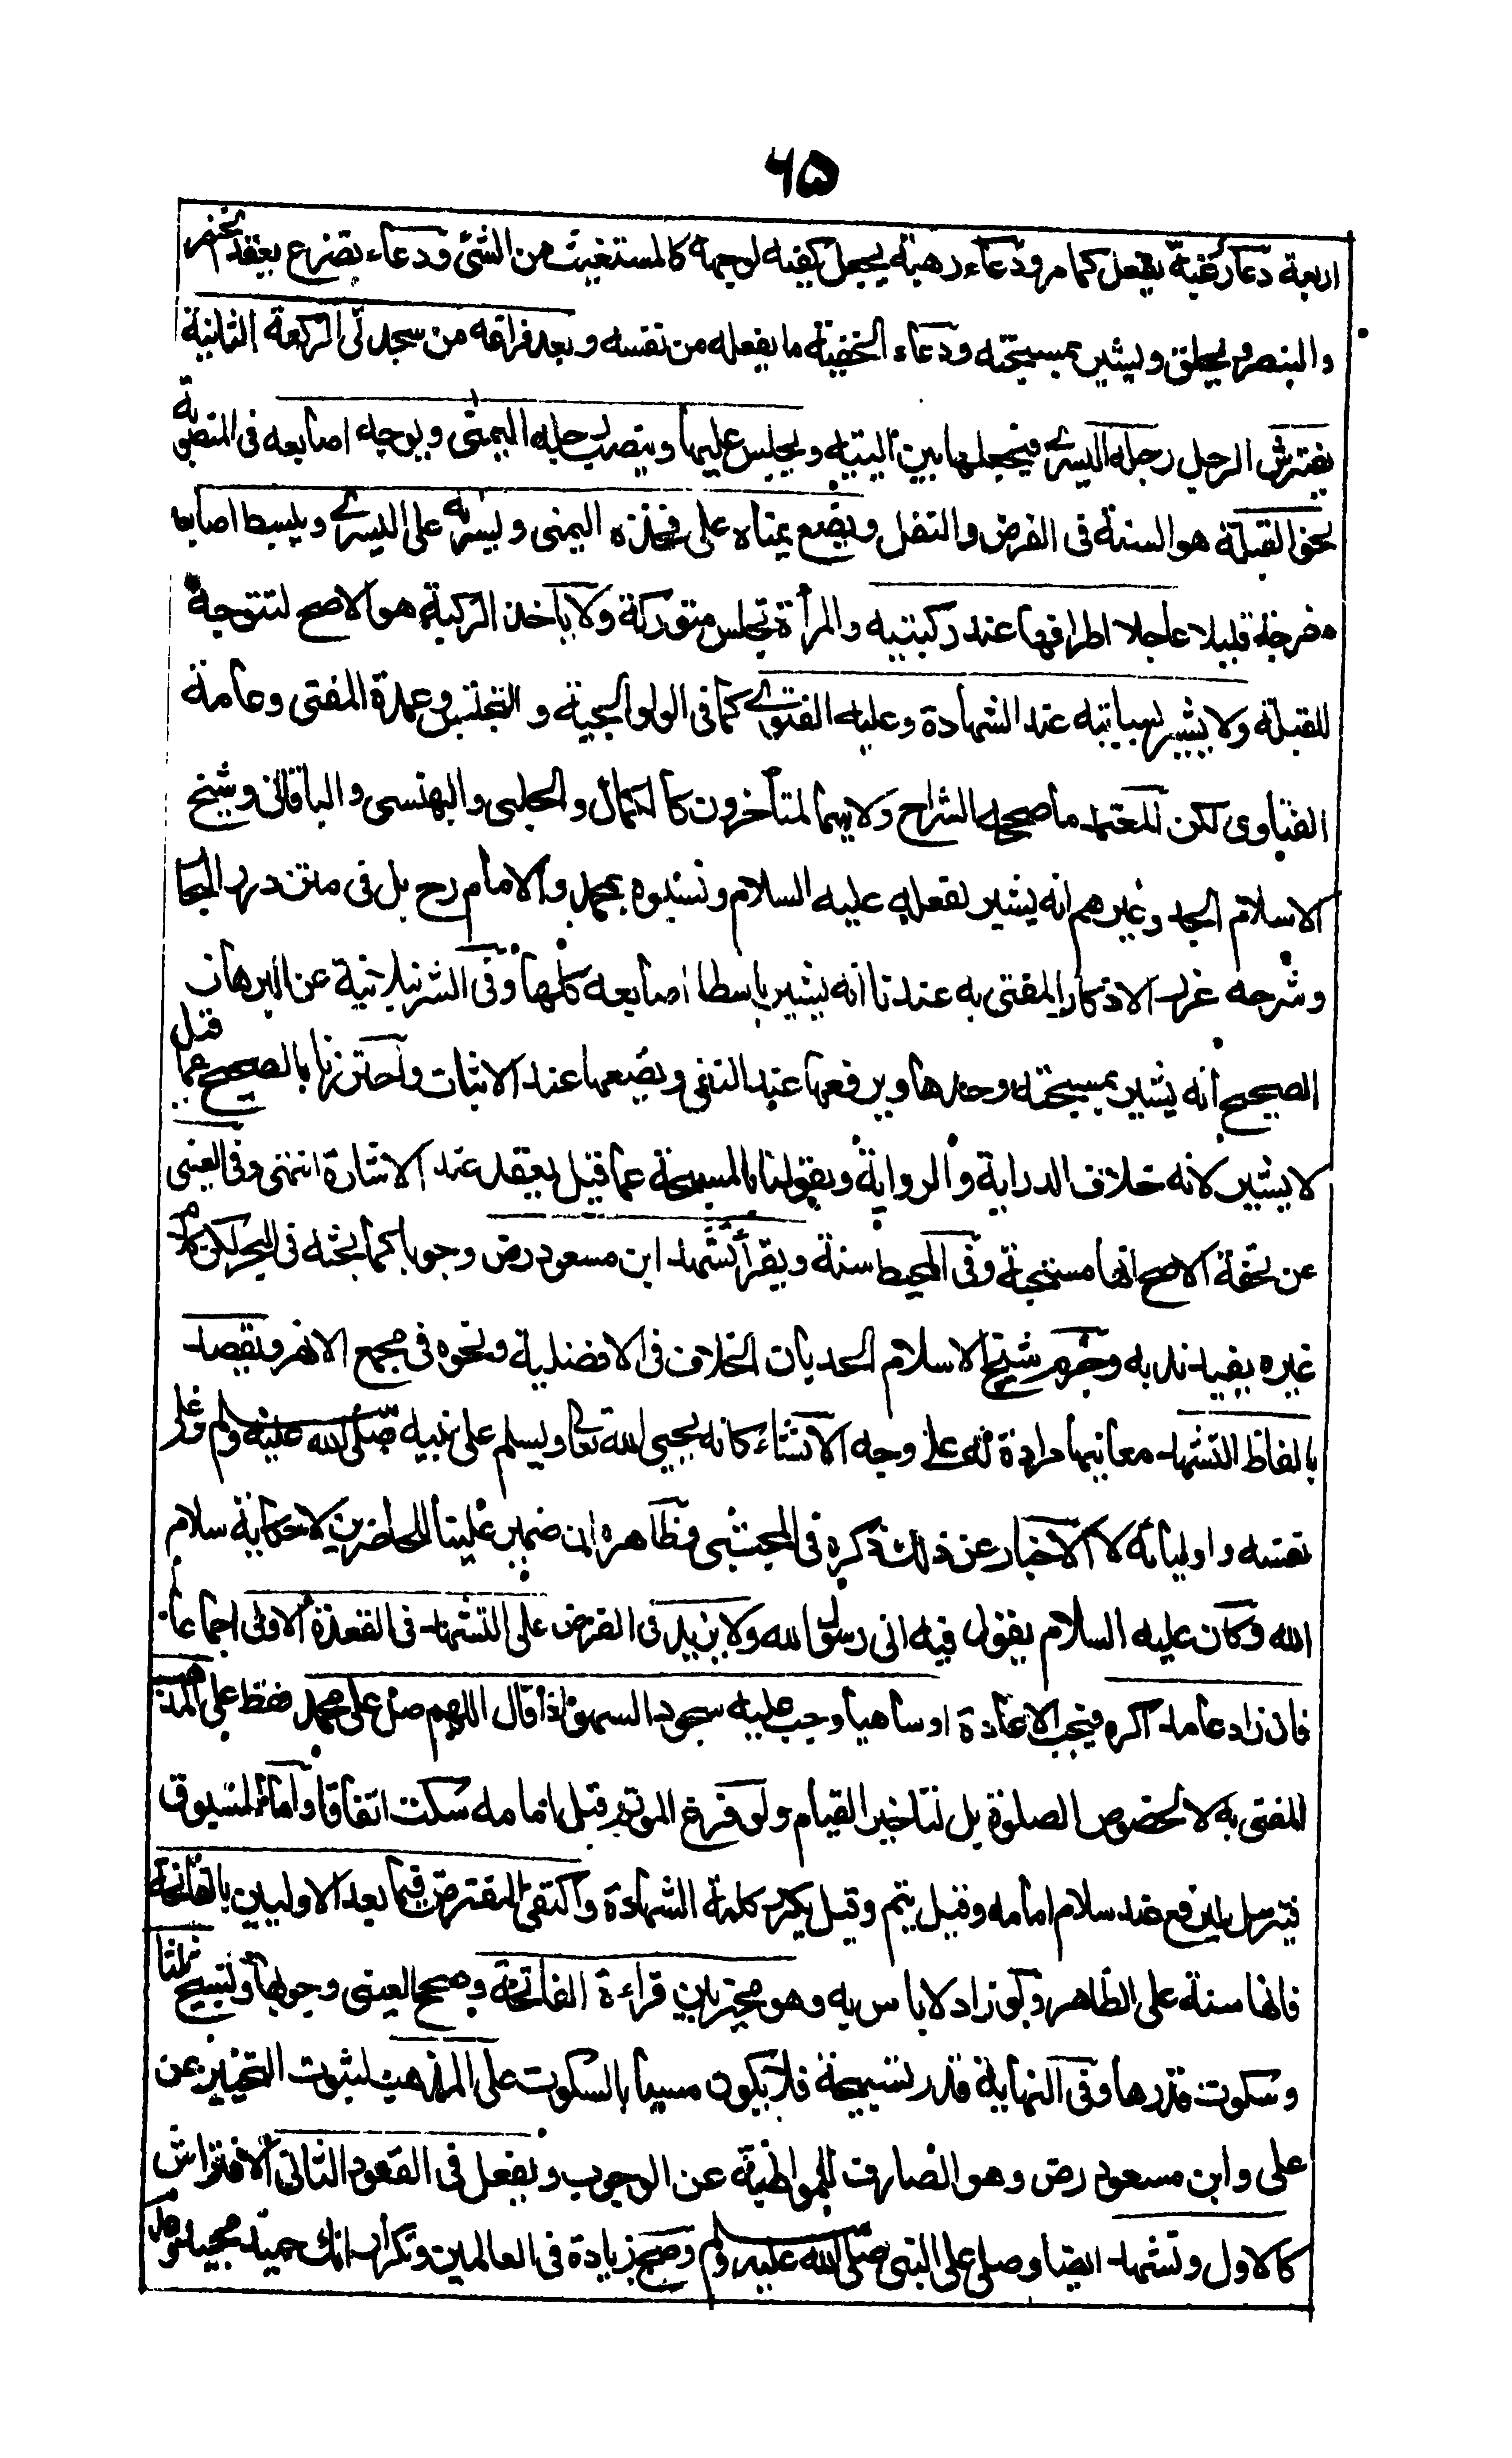 ٦٥
اربعة دعاء رغبة يفعل كما مر ودعاء رهبة يجعل كفيه لوجهه كالمستغيث من الشئ ودعاء تضرع يعقد الخنصر
والبنصر ويحلق ويشير بمسبحته ودعاء الخفية ما يفعله من نفسه وبعد فراغه من سجدتى الركعة الثانية
يفترش الرجل رجله اليسرے فيجعلها بين اليتيه ويجلس عليها وينصب رجله اليمنى ويوجه اصابعه فى المنصوبة
نحو القبلة هو السنة فى الفرض والنفل ويضع يمناه على فخذه اليمنى ويسراه على اليسرے ويبسط اصابعه
مفرجة قليلا جاعلا اطرافها عند ركبتيه والمرأة تجلس متوركة ولا ياخذ الركبة هو الاصح لتتوجه
للقبلة ولا يشير بسبابته عند الشهادة وعليه الفتوے كما فى الولوالجية والتجنيس وعمدة المفتى وعامة
الفتاوى لكن المعتمد ما صححه الشراح ولا سيما المتأخرون كالكمال والحلبى والبهنسى والباقانى وشيخ
الاسلام الجد وغيرهم انه يشير لفعله عليه السلام ونسبوه بمحمد والامام رح بل فى متن درر البحار
وشرحه غرر الاذكار المفتى به عندنا انه يشير باسطا اصابعه كلها وفى الشرنبلالية عن البرهان
الصحيح انه يشير بمسبحته وحدها ويرفعها عند النفى ويضعها عند الاثبات واحترزنا بالصحيح عما قيل
لا يشير لانه خلاف الدراية والرواية وبقولنا بالمسبحة عما قيل يعقد عند الاشارة انتهى وفى العينى
عن تحفة الاصح انها مستحبة وفى المحيط سنة ويقرأ تشهد ابن مسعود رض وجوبا كما بحثه فى البحر لكن كلام
غيره يفيد ندبه وجزم شيخ الاسلام الجد بان الخلاف فى الافضلية ونحوه فى مجمع الانهر ويقصد
بالفاظ التشهد معانيها مرادة له على وجه الانشاء كانه يحيى الله تعالى ويسلم على نبيه صلى الله عليه وسلم وعلى
نفسه واوليائه لا الاخبار عن ذلك ذكره فى المجتبى وظاهره ان ضمير علينا للحاضرين لا حكاية سلام
الله وكان عليه السلام يقول فيه انى رسول الله ولا يزيد فى الفرض على التشهد فى القعدة الاولى اجماعا
فان زاد عامدا كره فيجب الاعادة او ساهيا وجب عليه سجود السهو اذا قال اللهم صل على محمد فقط على المذهب
المفتى به لا لخصوص الصلوة بل لتاخير القيام ولو فرغ الموتم قبل امامه سكت اتفاقا واما المسبوق
فيترسل ليفرغ عند سلام امامه وقيل يتم وقيل يكرر كلمة الشهادة واكتفى المفترض فيما بعد الاوليين بالفاتحة
فانها سنة على الظاهر ولو زاد لا باس به وهو مخير بين قراءة الفاتحة وصحح العينى وجوبها وتسبيح ثلثا
وسكوت قدرها وفى النهاية قدر تسبيحة فلا يكون مسيا بالسكوت على المذهب لثبوت التخيير عن
على وابن مسعود رض وهو الصارف للمواظبة عن الوجوب ويفعل فى القعود الثانى الافتراش
كالاول وتشهد ايضا وصلى على النبى صلى الله عليه وسلم وصح زيادة فى العالمين وتكرار انك حميد مجيد